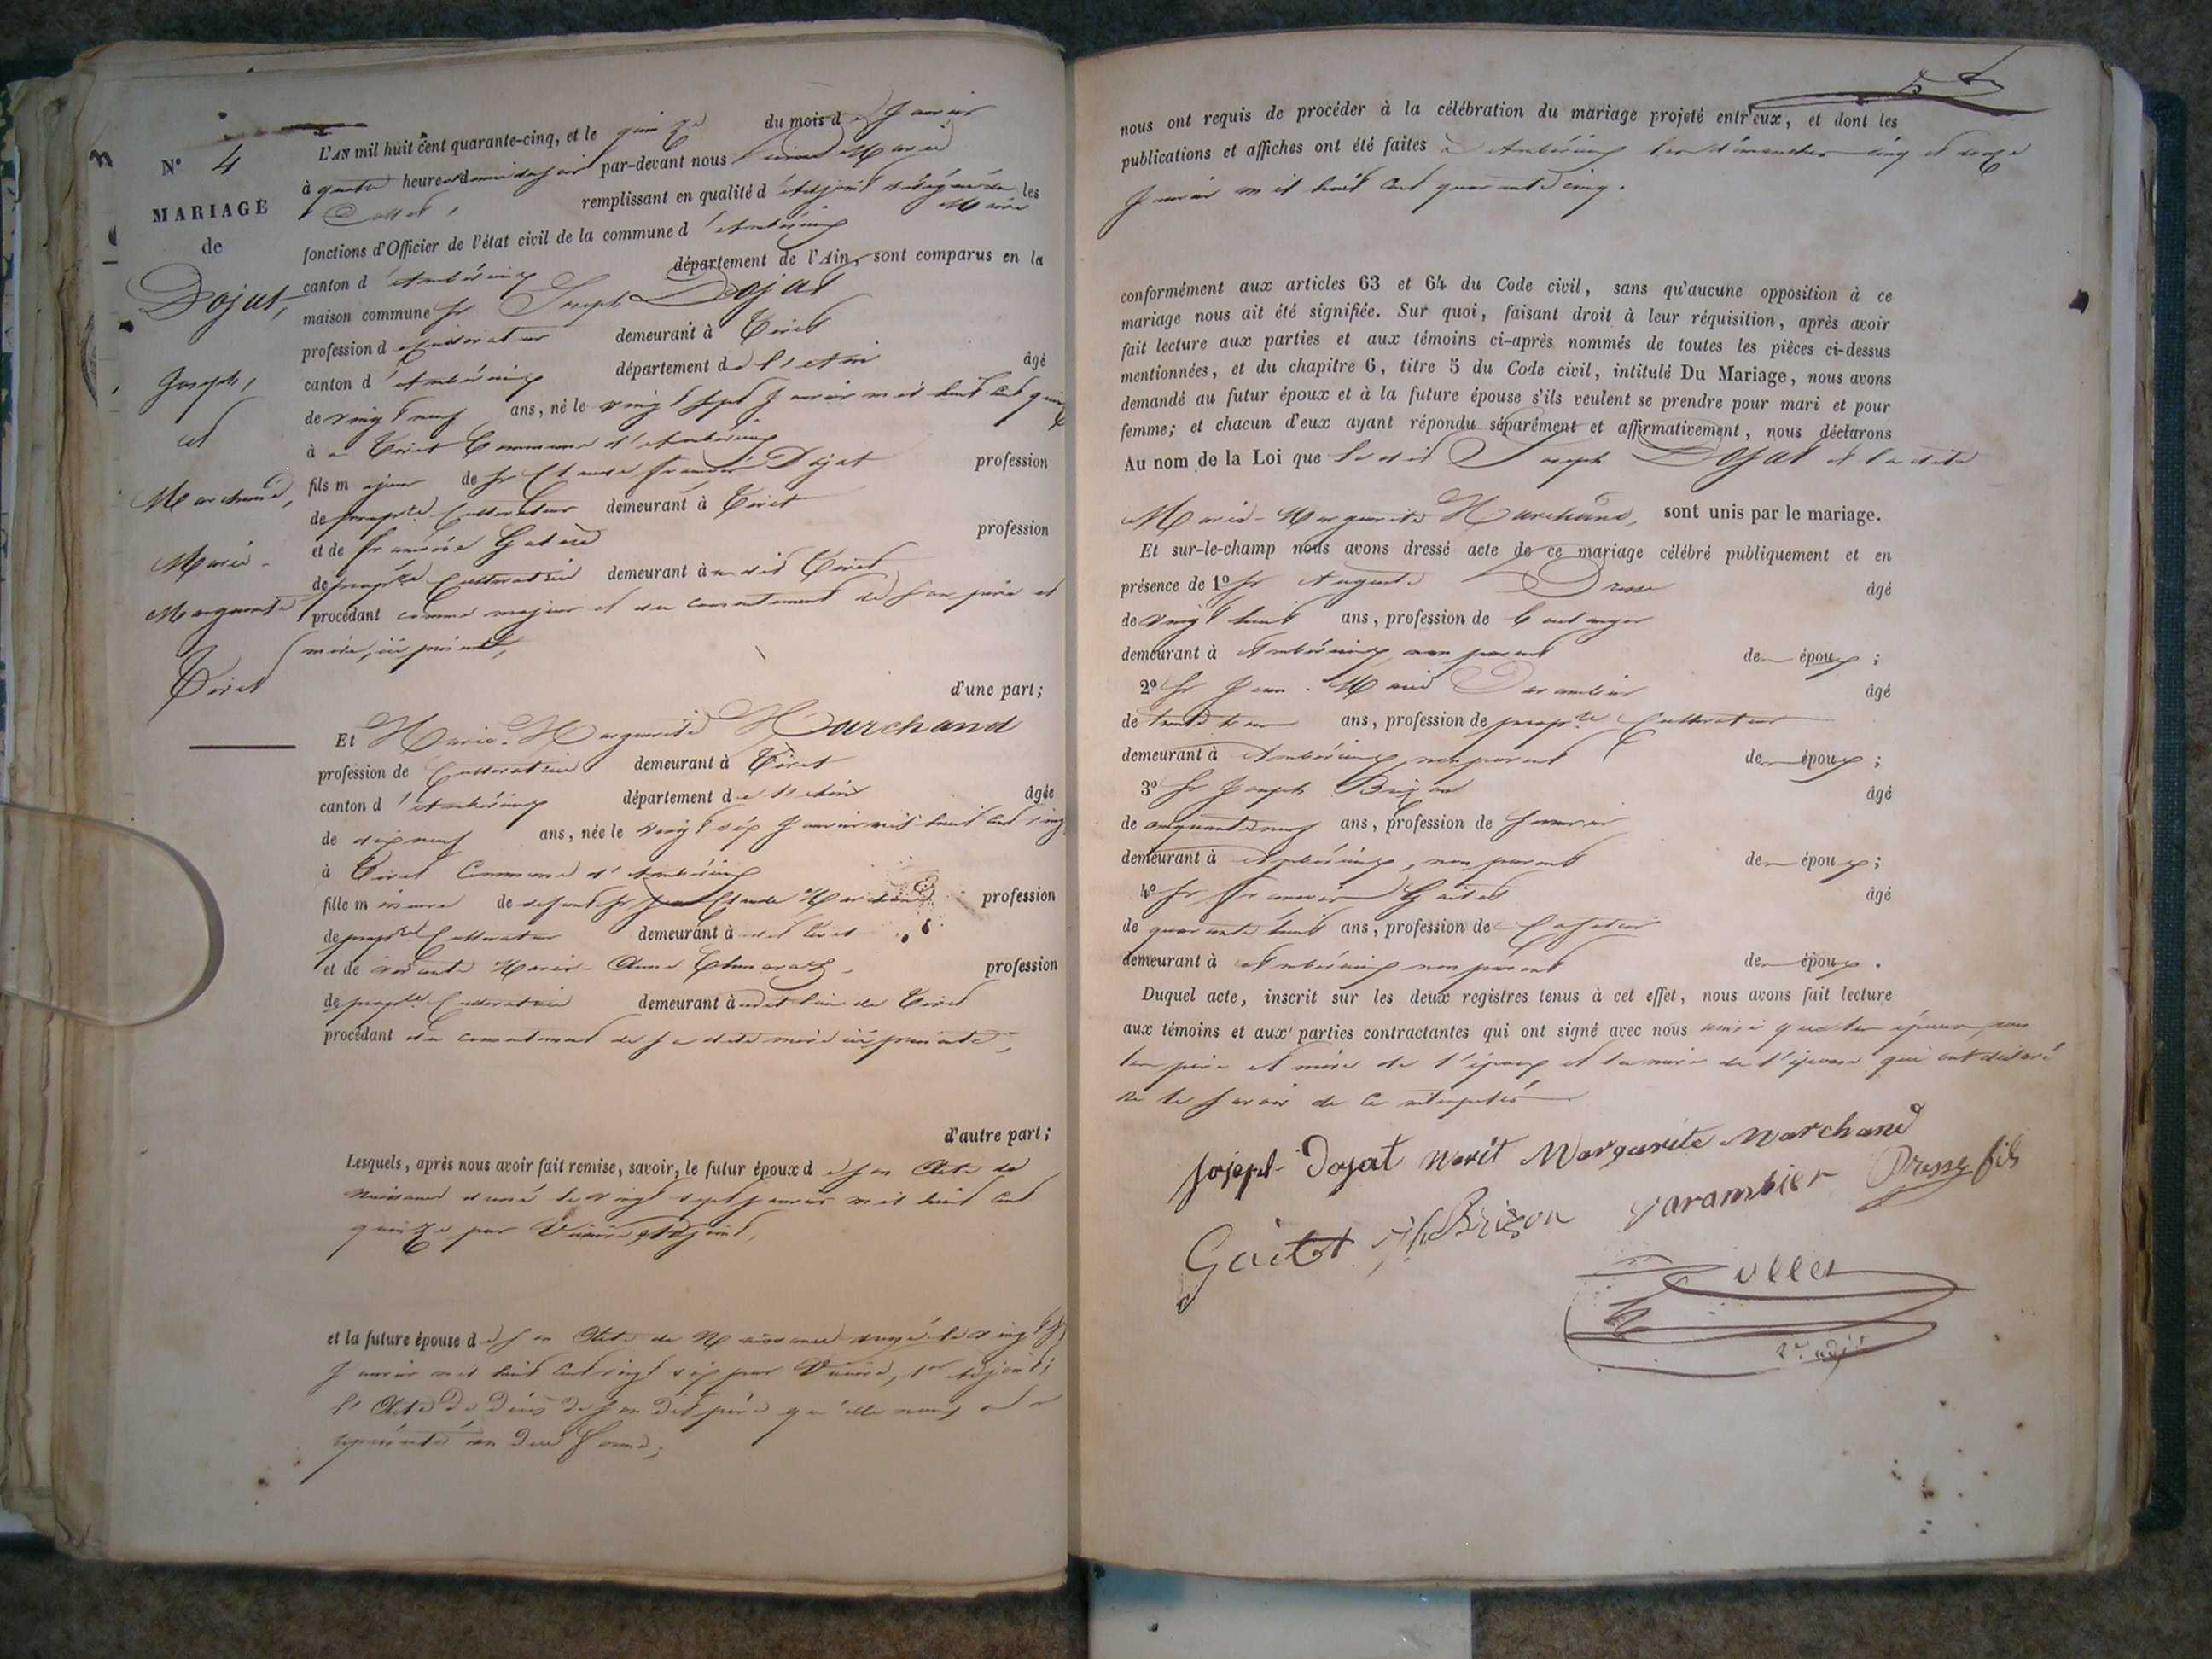 N° 4
MARIAGE
de
Dojat,
Joseph,
et
Marchand,
Marie-
Marguerite
Tiret
L'AN mil huit cent quarante-cinq, et le quinze du mois de Janvier
à quatre heures et demie du soir par-devant nous Marie
Collet, remplissant en qualité d'Adjoint délégué du Maire les
fonctions d'Officier de l'état civil de la commune d'Ambérieux
canton d'Ambérieux département de l'Ain, sont comparus en la
maison commune Sr Joseph Dojat
profession d cultivateur demeurant à Tiret
canton d'Ambérieux département de l'Ain âgé
de vingt neuf ans, né le vingt sept Janvier mil huit cent quinze
à Tiret Commune d'Ambérieux
fils majeur de Sr Claude François Dojat profession
de propre. Cultivateur demeurant à Tiret
et de Françoise profession
de propre. Cultivatrice demeurant à udit Tiret
procédant comme majeur et du consentement de son père et
mère, ici présents,
d'une part;
Et Marie-Marguerite Marchand
profession de Cultivatrice demeurant à Tiret
canton d'Ambérieux département de l'Ain âgée
de dix neuf ans, née le vingt six Janvier mil huit cent vingt
à Tiret Commune d'Ambérieux
fille mineure de défunt Sr Claude Marchand profession
de propre. Cultivateur demeurant à udit Tiret
et de vivante Marie-Anne profession
de propre. Cultivatrice demeurant à udit lieu de Tiret
procédant du consentement de sa dite mère ici présente,
d'autre part;
Lesquels, après nous avoir fait remise, savoir, le futur époux de son Acte de
naissance dressé le vingt sept janvier mil huit cent
quinze par Adjoint,
et la future épouse de son Acte de Naissance dressé le vingt six
Janvier mil huit cent vingt six par 1er Adjoint;
l'Acte de décès de son dit père qu'elle nous a
représenté en due forme;
nous ont requis de procéder à la célébration du mariage projeté entr'eux, et dont les
publications et affiches ont été faites à Ambérieux les dimanches cinq et douze
Janvier mil huit cent quarante cinq.
conformément aux articles 63 et 64 du Code civil, sans qu'aucune opposition à ce
mariage nous ait été signifiée. Sur quoi, faisant droit à leur réquisition, après avoir
fait lecture aux parties et aux témoins ci-après nommés de toutes les pièces ci-dessus
mentionnées, et du chapitre 6, titre 5 du Code civil, intitulé Du Mariage, nous avons
demandé au futur époux et à la future épouse s'ils veulent se prendre pour mari et pour
femme; et chacun d'eux ayant répondu séparément et affirmativement, nous déclarons
Au nom de la Loi que ledit Joseph Dojat et la dite
Marie-Marguerite Marchand, sont unis par le mariage.
Et sur-le-champ nous avons dressé acte de ce mariage célébré publiquement et en
présence de 1° Sr Auguste âgé
de vingt huit ans, profession de Boulanger
demeurant à Ambérieux non parent des époux;
2° Sr Jean-Marie Varambier âgé
de trente ans, profession de propre. Cultivateur
demeurant à Ambérieux, non parent des époux;
3° Sr Joseph Brizon âgé
de cinquante neuf ans, profession de
demeurant à Ambérieux, non parent des époux;
4° Sr François Gaitet âgé
de quarante huit ans, profession de Cafetier
demeurant à Ambérieux non parent des époux.
Duquel acte, inscrit sur les deux registres tenus à cet effet, nous avons fait lecture
aux témoins et aux parties contractantes qui ont signé avec nous ainsi que les époux, non
les père et mère de l'époux et la mère de l'épouse qui ont déclaré
ne le savoir de ce interpellés
Josept Dojat Marit Margurite Marchand
Gaitet Brizon Varambier fils
Collet
adjt